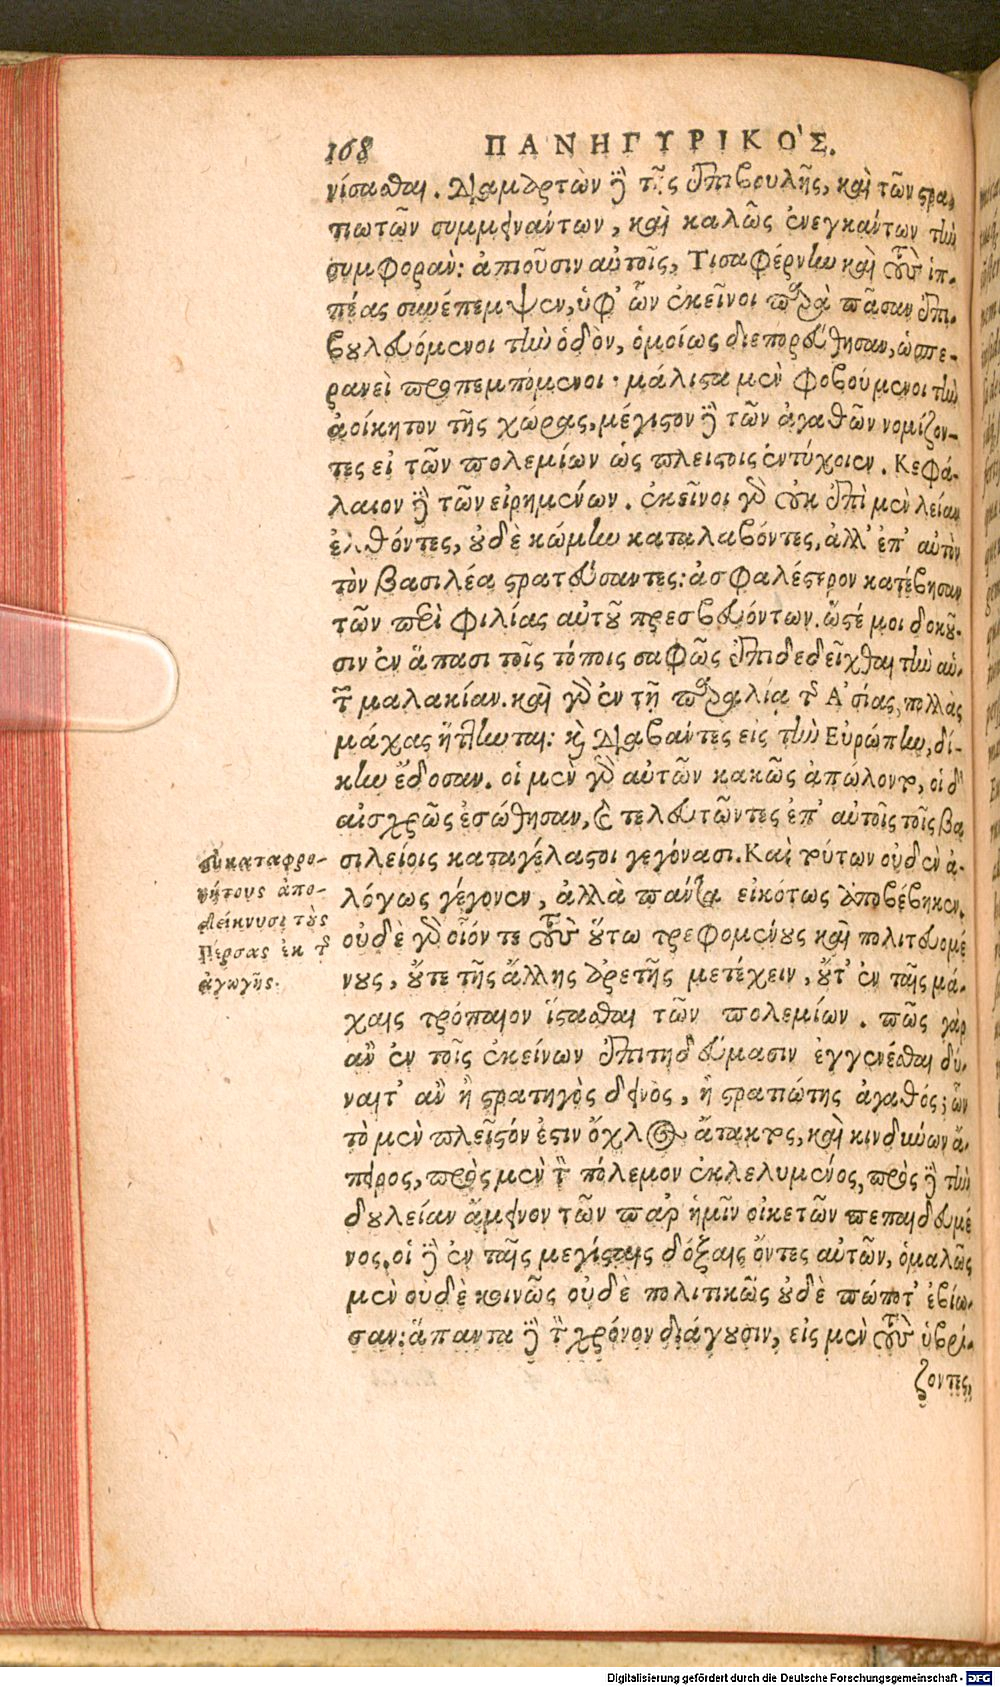 168 ΠΑΝΗΓΥΡΙΚΟ'Σ.
νίσασθαι. διαμαρτὼν δὲ τῆς ἐπιβουλῆς, καὶ τῶν στρα-
τιωτῶν συμμεινάντων, καὶ καλῶς ἐνεγκάντων τὴν
συμφορὰν: ἀπιοῦσιν αὐτοῖς, Τισαφέρνην καὶ τοὺς ἱπ-
πέας συνέπεμψεν, ὑφ' ὧν ἐκεῖνοι παρὰ πᾶσαν ἐπι-
βουλευόμενοι τὴν ὁδὸν, ὁμοίως διεπορεύθησαν, ὡσπε-
ρανεὶ προπεμπόμενοι· μάλιστα μὲν φοβούμενοι τὴν
ἀοίκητον τῆς χώρας, μέγιστον δὲ τῶν ἀγαθῶν νομίζον-
τες εἰ τῶν πολεμίων ὡς πλείστοις ἐντύχοιεν. Κεφά-
λαιον δὲ τῶν εἰρημένων. ἐκεῖνοι γὰρ οὐκ ἐπὶ μὲν λείαν
ἐλθόντες, οὐδὲ κώμην καταλαβόντες, ἀλλ' ἐπ' αὐτὸν
τὸν βασιλέα στρατεύσαντες: ἀσφαλέστερον κατέβησαν
τῶν περὶ φιλίας αὐτοῦ πρεσβευόντων. ὥστέ μοι δοκοῦ-
σιν ἐν ἅπασι τοῖς τόποις σαφῶς ἐπιδεδεῖχθαι τὴν αὑ-
τῶν μαλακίαν. καὶ γὰρ ἐν τῇ παραλίᾳ τῆς Ἀσίας, πολλὰς
μάχας ἥττηνται: καὶ διαβάντες εἰς τὴν Εὐρώπην, δί-
κην ἔδοσαν. οἱ μὲν γὰρ αὐτῶν κακῶς ἀπώλοντο, οἱ δ'
αἰσχρῶς ἐσώθησαν, καὶ τελευτῶντες ἐπ' αὐτοῖς τοῖς βα
σιλείοις καταγέλαστοι γεγόνασι. Καὶ τούτων οὐδὲν ἀ-
λόγως γέγονεν, ἀλλὰ πάντα εἰκότως ἀποβέβηκεν.
οὐδὲ γὰρ οἷόν τε τοὺς οὕτω τρεφομένους καὶ πολιτευομέ
νους, οὔτε τῆς ἄλλης ἀρετῆς μετέχειν, οὔτ' ἐν ταῖς μά-
χαις τρόπαιον ἵστασθαι τῶν πολεμίων. πῶς γὰρ
ἂν ἐν τοῖς ἐκείνων ἐπιτηδεύμασιν ἐγγενέσθαι δύ-
ναιτ' ἂν ἢ στρατηγὸς δεινὸς, ἢ στρατιώτης ἀγαθός; ὧν
τὸ μὲν πλεῖστόν ἐστιν ὄχλος ἄτακτος, καὶ κινδύνων ἄ-
πειρος, πρὸς μὲν τὸν πόλεμον ἐκλελυμένος, πρὸς δὲ τὴν
δουλείαν ἄμεινον τῶν παρ' ἡμῖν οἰκετῶν πεπαιδευμέ
νος. οἱ δὲ ἐν ταῖς μεγίσταις δόξαις ὄντες αὐτῶν, ὁμαλῶς
μὲν οὐδὲ κοινῶς οὐδὲ πολιτικῶς οὐδὲ πώποτ' ἐβίω-
σαν: ἅπαντα δὲ τὸν χρόνον διάγουσιν, εἰς μὲν τοὺς ὑβρί-
ζοντες,
εὐκαταφρο-
νήτους ἀπο-
δείκνυσι τοὺς
Πέρσας ἐκ τῆς
ἀγωγῆς.
Digitalisierung gefördert durch die Deutsche Forschungsgemeinschaft - DFG